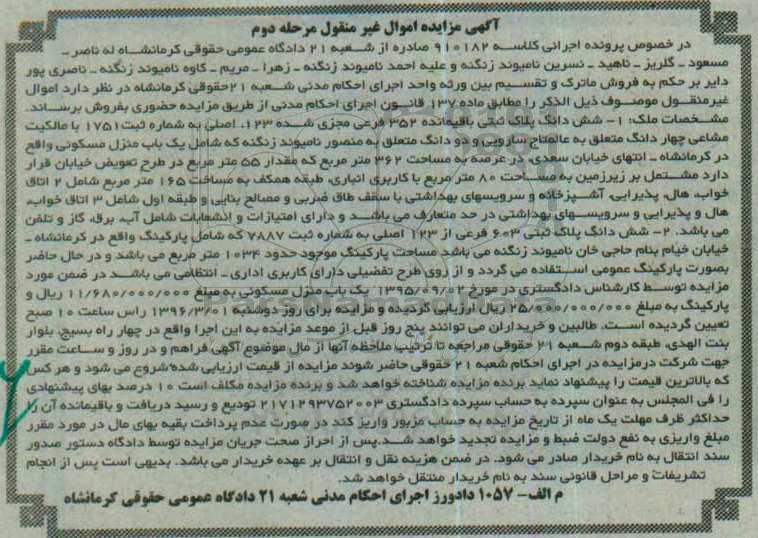 آگهی مزایده اموال غیر منقول مرحله دوم
در خصوص پرونده اجرائی کلاسه ۹۱۰۱۸۲ صادره از شعبه ۲۱ دادگاه عمومی حقوقی کرمانشاه له ناصر ـ
مسعود ـ گلریز ـ ناهید ـ نسرین نامیوند زنگنه و علیه احمد نامیوند زنگنه ـ زهرا ـ مریم ـ کاوه نامیوند زنگنه ـ ناصری پور
دایر بر حکم به فروش ماترک و تقسیم بین ورثه واحد اجرای احکام مدنی شعبه ۲۱حقوقی کرمانشاه در نظر دارد اموال
غیرمنقول موصوف ذیل الذکر را مطابق ماده ۱۳۷ قانون اجرای احکام مدنی از طریق مزایده حضوری بفروش برساند.
مشخصات ملک: ۱- شش دانگ پلاک ثبتی باقیمانده ۳۵۲ فرعی مجزی شده ۱۲۳. اصلی به شماره ثبت۱۷۵۱ با مالکیت
مشاعی چهار دانگ متعلق به عالمتاج سارویی و دو دانگ متعلق به منصور نامیوند زنگنه که شامل یک باب منزل مسکونی واقع
در کرمانشاه ـ انتهای خیابان سعدی، در عرصه به مساحت ۳۶۲ متر مربع که مقدار ۵۵ متر مربع در طرح تعویض خیابان قرار
دارد مشتمل بر زیرزمین به مساحت ۸۰ متر مربع با کاربری انباری، طبقه همکف به مساحت ۱۶۵ متر مربع شامل ۲ اتاق
خواب، هال، پذیرایی، آشپزخانه و سرویسهای بهداشتی با سقف طاق ضربی و مصالح بنایی و طبقه اول شامل ۳ اتاق خواب،
هال و پذیرایی و سرویسهای بهداشتی در حد متعارف می باشد و دارای امتیازات و انشعابات شامل آب، برق، گاز و تلفن
می باشد. ۲- شش دانگ پلاک ثبتی ۶۰۳ فرعی از ۱۲۳ اصلی به شماره ثبت ۷۸۸۷ که شامل پارکینگ واقع در کرمانشاه ـ
خیابان خیام بنام حاجی خان نامیوند زنگنه می باشد مساحت پارکینگ موجود حدود ۱۰۳۴ متر مربع می باشد و در حال حاضر
بصورت پارکینگ عمومی استفاده می گردد و از روی طرح تفضیلی دارای کاربری اداری ـ انتظامی می باشد در ضمن مورد
مزایده توسط کارشناس دادگستری در مورخ ۱۳۹۵/۰۹/۰۲ یک باب منزل مسکونی به مبلغ ۱۱/۶۸۰/۰۰۰/۰۰۰ ریال و
پارکینگ به مبلغ ۲۵/۰۰۰/۰۰۰/۰۰۰ ریال ارزیابی گردیده و مزایده برای روز دوشنبه ۱۳۹۶/۳/۰۱ راس ساعت ۱۰ صبح
تعیین گردیده است. طالبین و خریداران می توانند پنج روز قبل از موعد مزایده به این اجرا واقع در چهار راه بسیج، بلوار
بنت الهدی، طبقه دوم شعبه ۲۱ حقوقی مراجعه تا ترتیب ملاحظه آنها از مال موضوع آگهی فراهم و در روز و ساعت مقرر
جهت شرکت درمزایده در اجرای احکام شعبه ۲۱ حقوقی حاضر شوند مزایده از قیمت ارزیابی شده شروع می شود و هر کس
که بالاترین قیمت را پیشنهاد نماید برنده مزایده شناخته خواهد شد و برنده مزایده مکلف است ۱۰ درصد بهای پیشنهادی
را فی المجلس به عنوان سپرده به حساب سپرده دادگستری ۲۱۷۱۲۹۳۷۵۲۰۰۳ تودیع و رسید دریافت و باقیمانده آن را
حداکثر ظرف مهلت یک ماه از تاریخ مزایده به حساب مزبور واریز کند در صورت عدم پرداخت بقیه بهای مال در مورد مقرر
مبلغ واریزی به نفع دولت ضبط و مزایده تجدید خواهد شد.پس از احراز صحت جریان مزایده توسط دادگاه دستور صدور
سند انتقال به نام خریدار صادر می شود. در ضمن هزینه نقل و انتقال بر عهده خریدار می باشد. بدیهی است پس از انجام
تشریفات و مراحل قانونی سند به نام خریدار منتقل خواهد شد.
م الف- ۱۰۵۷ دادورز اجرای احکام مدنی شعبه ۲۱ دادگاه عمومی حقوقی کرمانشاه